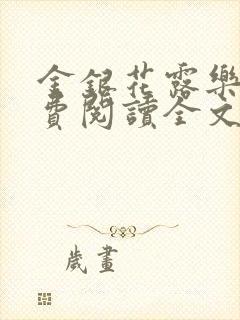 金銀花露樂
費閱讀全文
歲畫